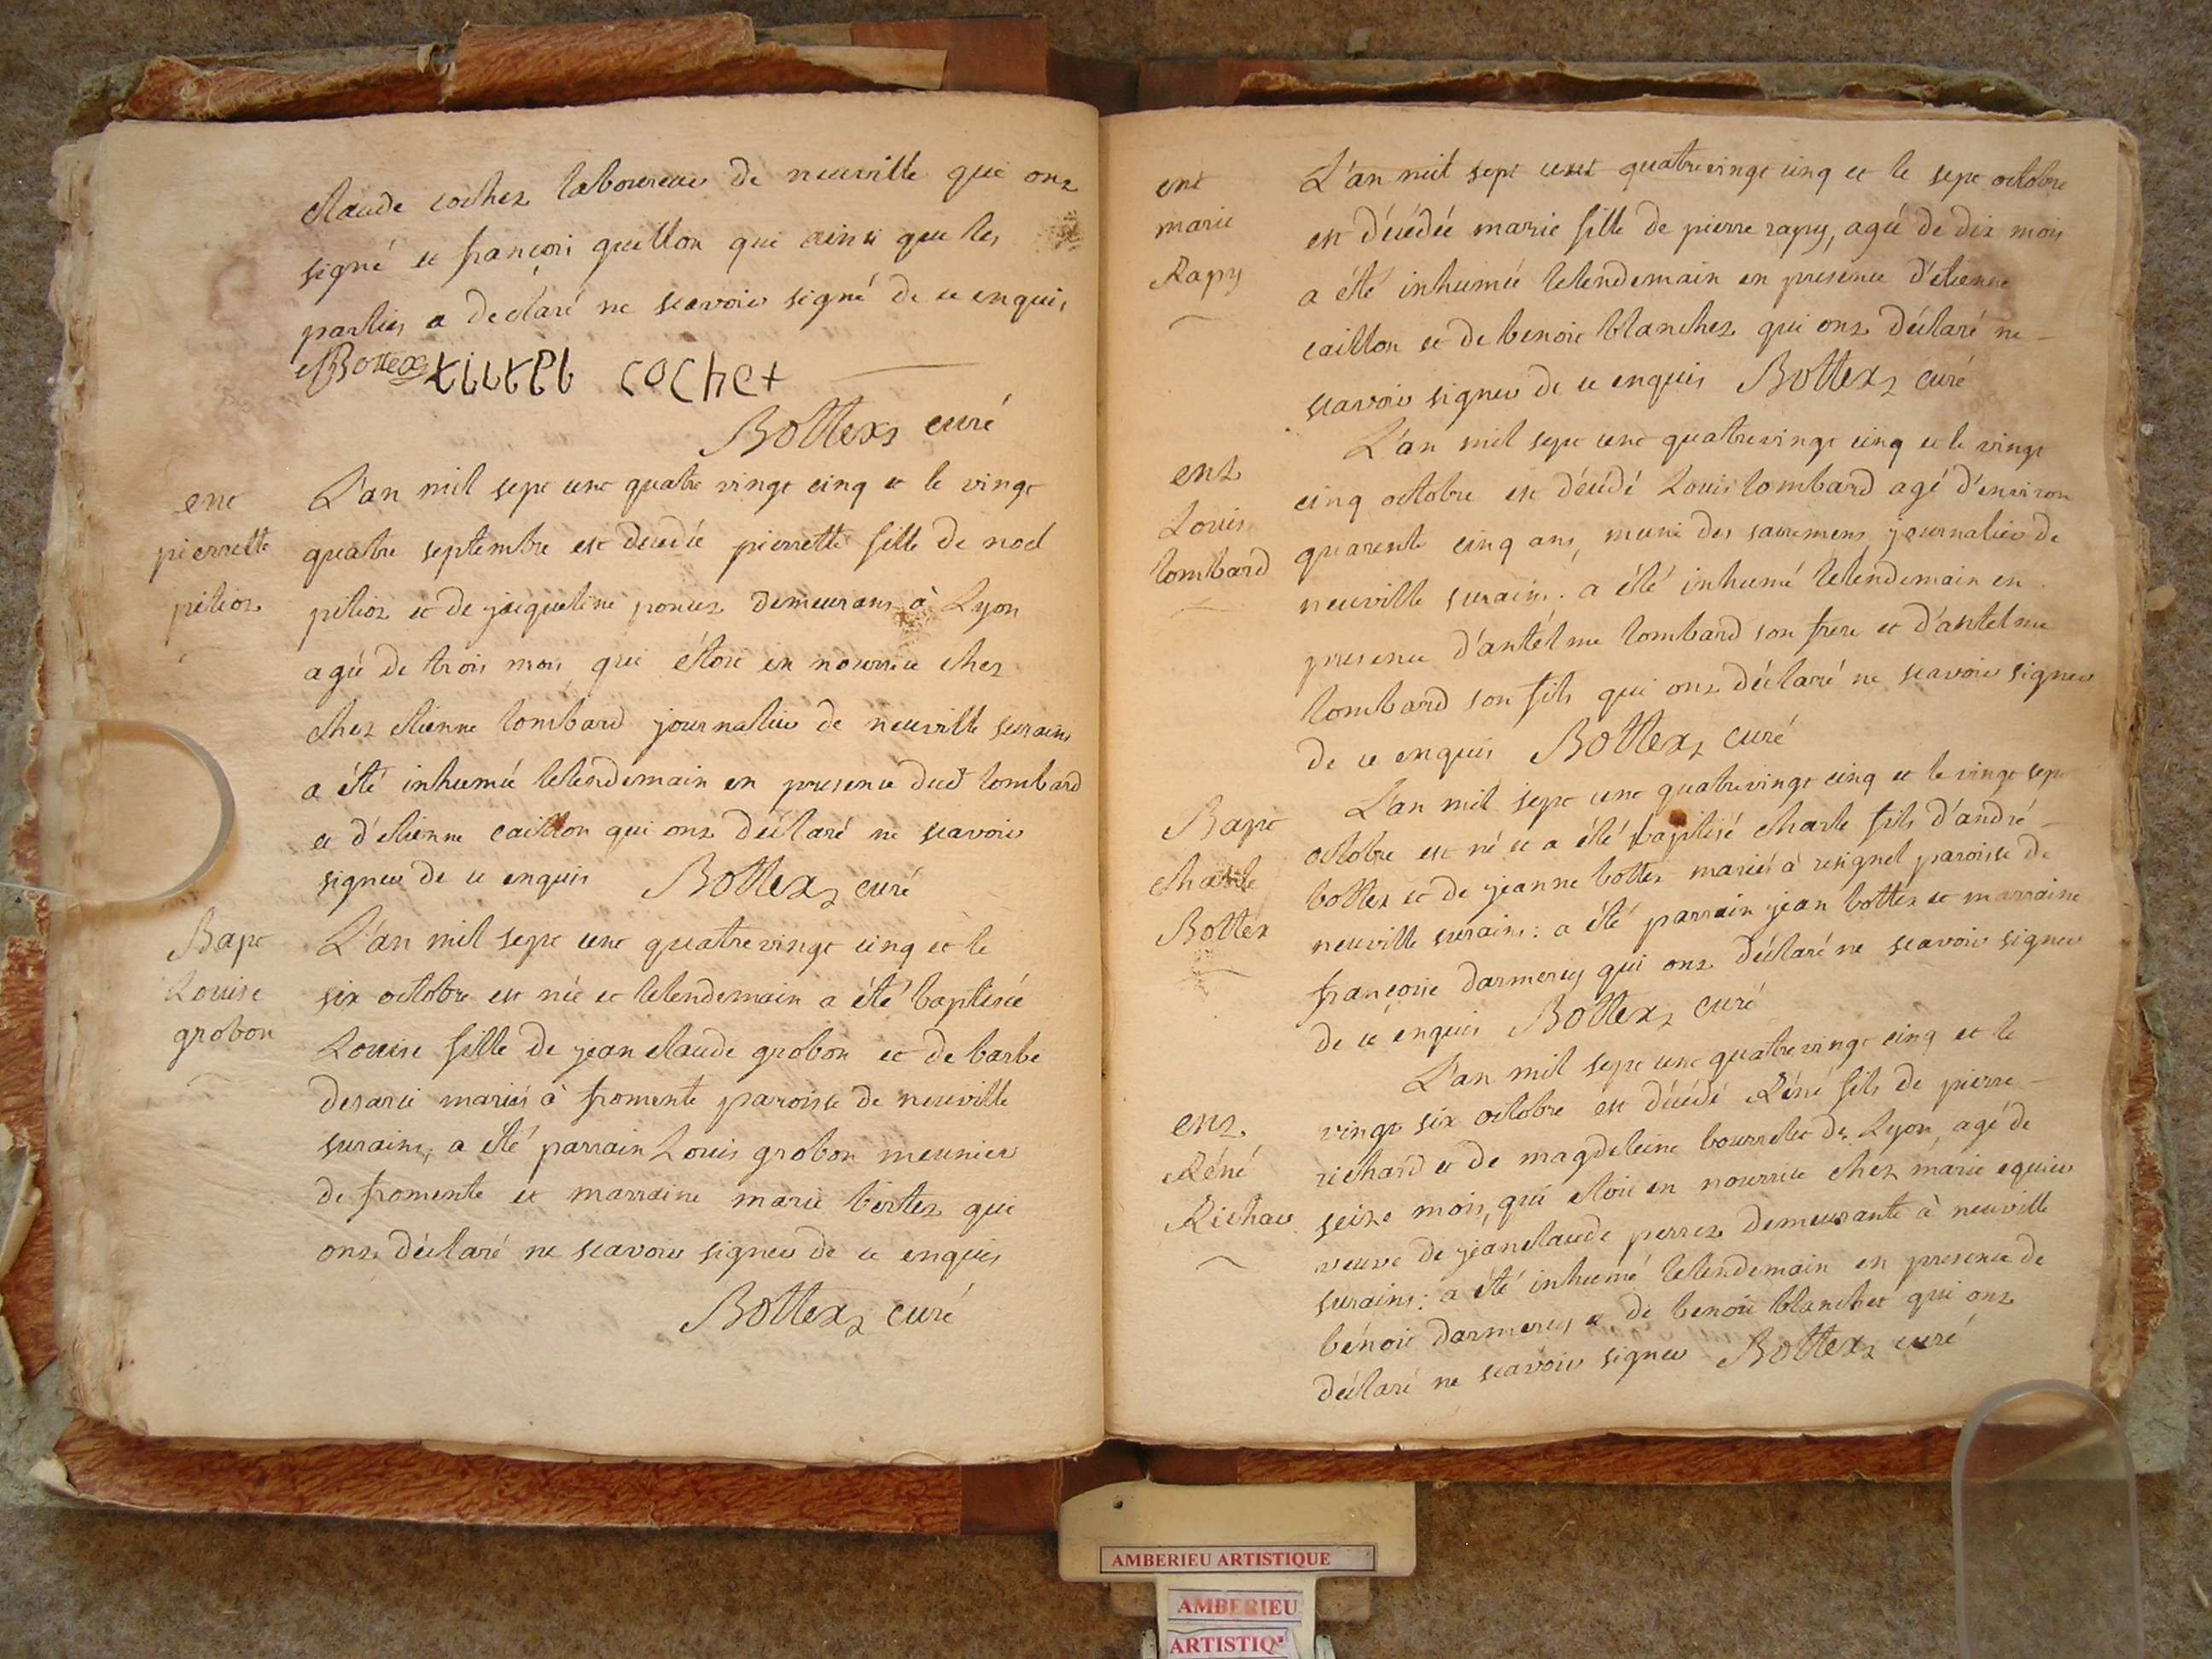 claude cochet laboureur de neuville qui ont
signé et françois guillon qui ainsi que les
parties a declaré ne scavoir signé de ce enquis
Bottex cochet
Bottex curé
ent
pierrette
pitiot
L'an mil sept cent quatre vingt cinq et le vingt
quatre septembre est decedée pierrette fille de noel
pitiot et de jacqueline poncet demeurans à Lyon
agée de trois mois, qui étoit en nourrice chez
chez etienne lombard journalier de neuville surains
a été inhumée le lendemain en presence dud lombard
et d'etienne caillon qui ont déclaré ne scavoir
signer de ce enquis Bottex curé
Bapt
Louise
grobon
L'an mil sept cent quatre vingt cinq et le
six octobre est née et le lendemain a été baptisée
Louise fille de jean claude grobon et de barbe
mariés à fromente paroisse de neuville
surains, a été parrain Louis grobon meunier
de fromente et marraine marie qui
ont déclaré ne scavoir signer de ce enquis
Bottex curé
ent
marie
Rapy
L'an mil sept cent quatrevingt cinq et le sept octobre
est décédée marie fille de pierre rapy, agée de dix mois
a été inhumée le lendemain en presence d'etienne
caillon et de benoit blanchet qui ont déclaré ne
scavoir signer de ce enquis Bottex curé
ent
Louis
lombard
L'an mil sept cent quatrevingt cinq et le vingt
cinq octobre est décédé Louis lombard agé d'environ
quarente cinq ans, muni des sacremens, journalier de
neuville surains. a été inhumé le lendemain en
presence d'antélme lombard son frere et d'antelme
lombard son fils qui ont déclaré ne scavoir signer
de ce enquis Bottex curé
Bapt
charle
Bottex
L'an mil sept cent quatrevingt cinq et le vingt sept
octobre est né et a été baptisé charle fils d'andré
bottex et de jeanne bottex mariés à resignel paroisse de
neuville surains: a été parrain jean bottex et marraine
françoise darmercy qui ont déclaré ne scavoir signer
de ce enquis Bottex curé
ent
Réné
Richar
L'an mil sept cent quatrevingt cinq et le
vingt six octobre est décédé Réné fils de pierre
richard et de magdeleine bourrelet de Lyon, agé de
seize mois, qui étoit en nourrice chez marie
veuve de jeanclaude perret demeurante à neuville
surains: a été inhumé le lendemain en presence de
bénoit darmercy et de benoit blanchet qui ont
déclaré ne scavoir signer Bottex curé
AMBERIEU ARTISTIQUE
AMBERIEU
ARTISTIQ